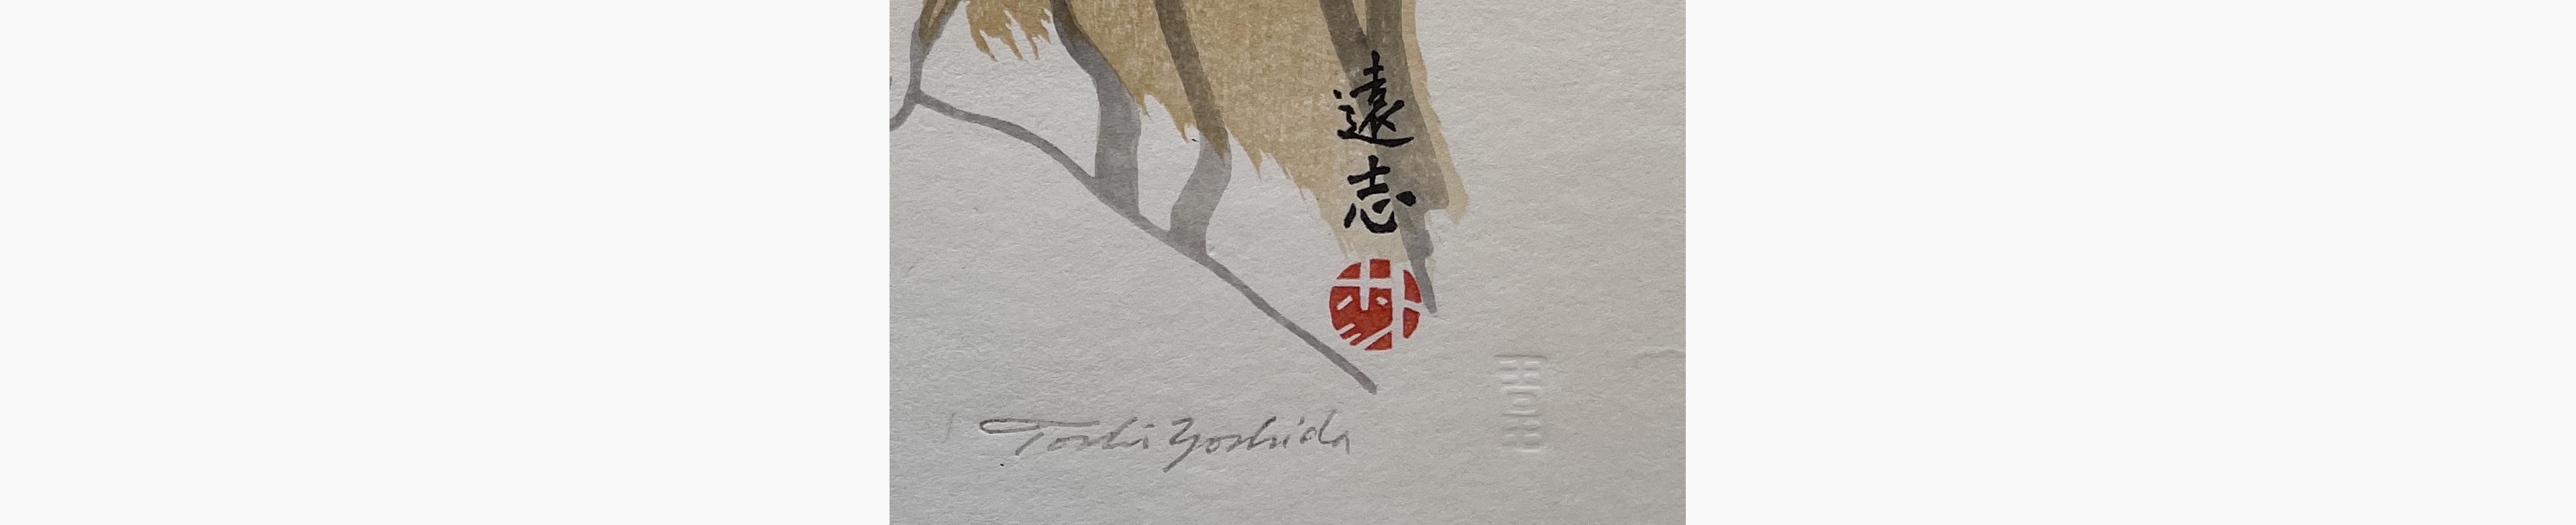 遠志
Toshi Yoshida